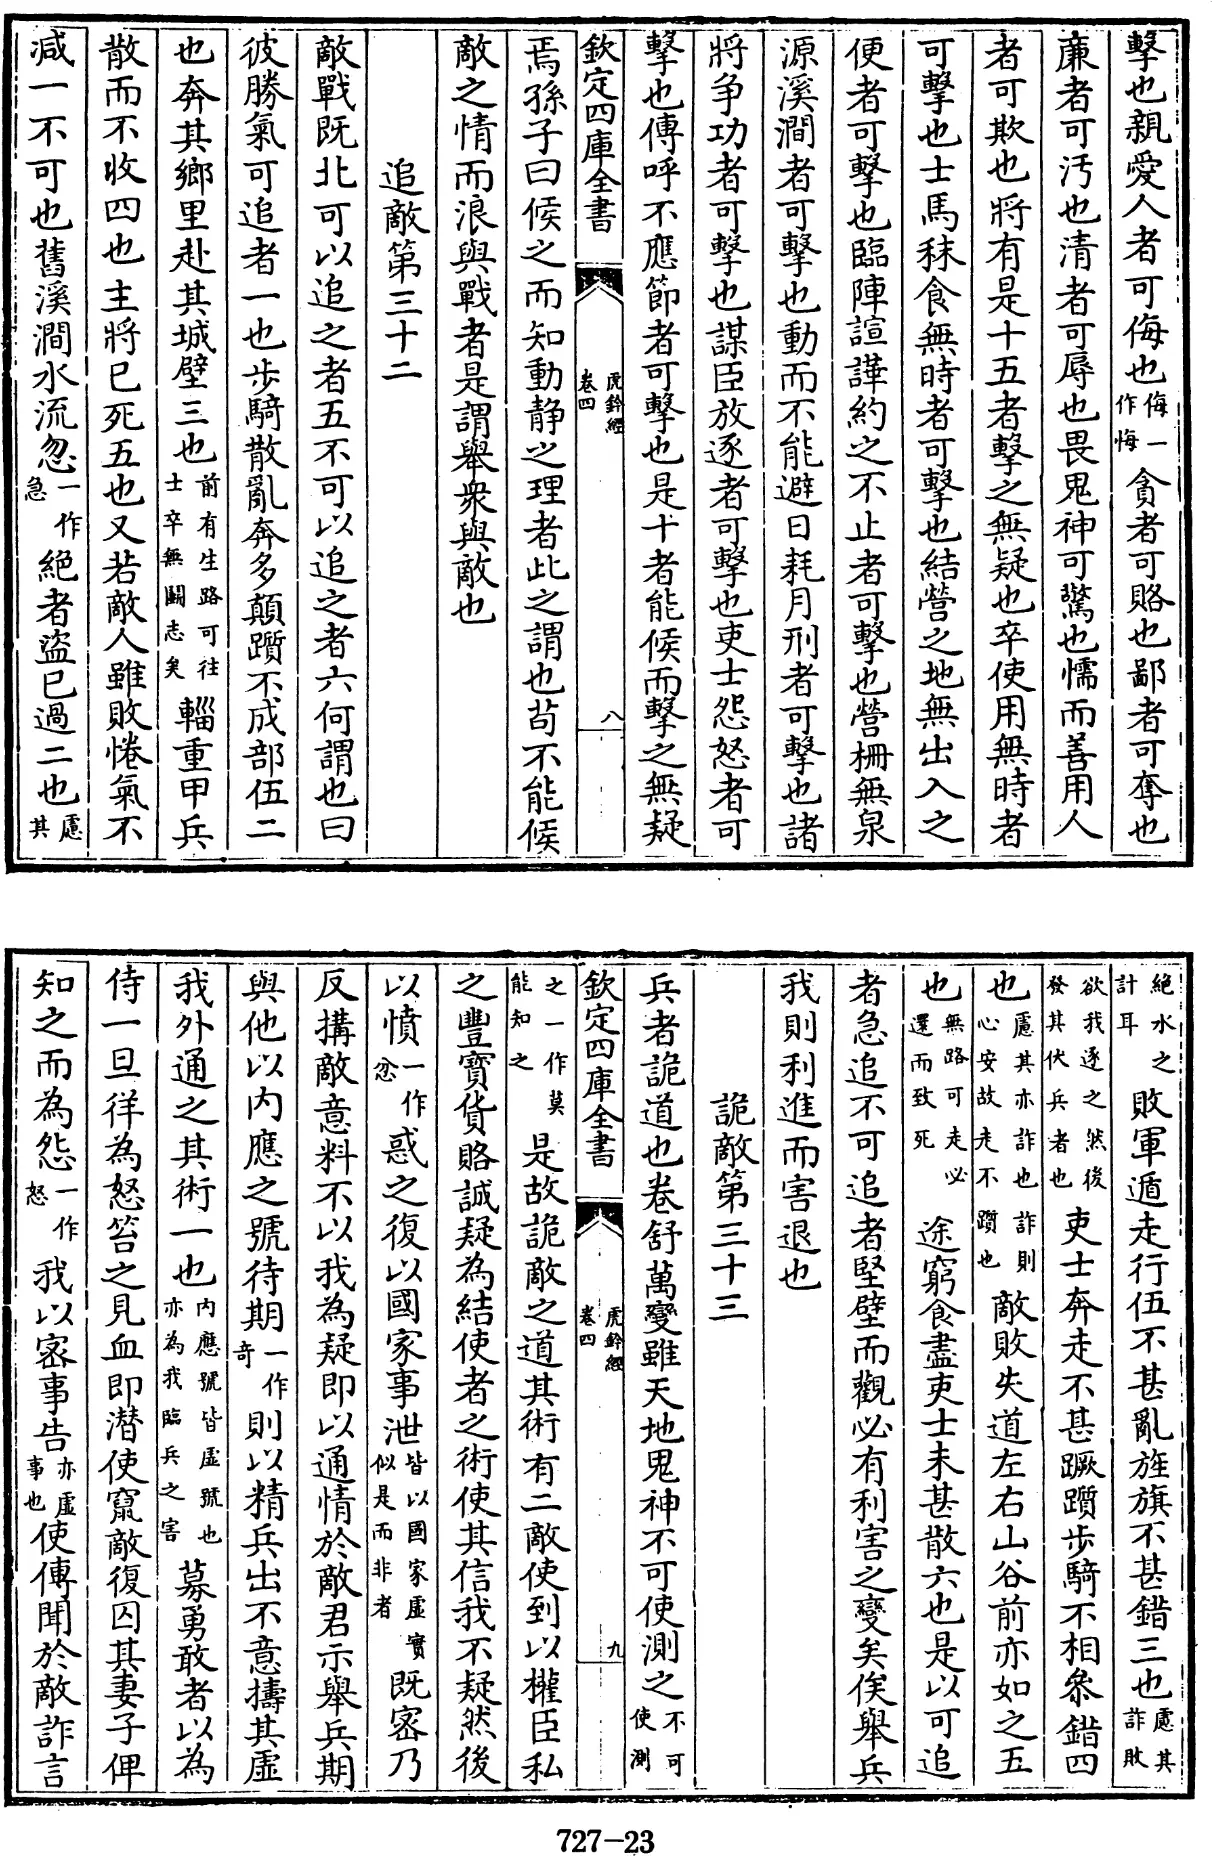 擊也親愛人者可侮也侮一作悔貪者可賂也鄙者可奪也
廉者可汚也清者可辱也畏鬼神可驚也懦而善用人
者可欺也將有是十五者擊之無疑也卒使用無時者
可擊也士馬秣食無時者可擊也結營之地無出入之
便者可擊也臨陣諠譁約之不止者可擊也營柵無泉
源溪澗者可擊也動而不能避日耗月刑者可擊也諸
將争功者可擊也謀臣放逐者可擊也吏士怨怒者可
擊也傳呼不應節者可擊也是十者能候而擊之無疑
欽定四庫全書 虎鈐經卷四 八
焉孫子曰候之而知動静之理者此之謂也苟不能候
敵之情而浪與戰者是謂舉衆與敵也
追敵第三十二
敵戰既北可以追之者五不可以追之者六何謂也曰
彼勝氣可追者一也步騎散亂奔多顛躓不成部伍二
也奔其鄉里赴其城壁三也前有生路可往士卒無鬭志矣輜重甲兵
散而不收四也主將已死五也又若敵人雖敗惓氣不
減一不可也舊溪澗水流忽一作急絶者盜已過二也慮其
絶水之計耳敗軍遁走行伍不甚亂旌旗不甚錯三也慮其詐敗
欲我逐之然後發其伏兵者也吏士奔走不甚蹶躓步騎不相叅錯四
也慮其亦詐也詐則心安故走不躓也敵敗失道左右山谷前亦如之五
也無路可走必還而致死途窮食盡吏士未甚散六也是以可追
者急追不可追者堅壁而觀必有利害之變矣俟舉兵
我則利進而害退也
詭敵第三十三
兵者詭道也卷舒萬變雖天地鬼神不可使測之不可使測
欽定四庫全書 虎鈐經卷四 九
之一作莫能知之是故詭敵之道其術有二敵使到以權臣私
之豐寳貨賂誠疑為結使者之術使其信我不疑然後
以憤一作忿惑之復以國家事泄皆以國家虛實似是而非者既密乃
反搆敵意料不以我為疑即以通情於敵君示舉兵期
與他以内應之號待期一作奇則以精兵出不意擣其虛
我外通之其術一也内應號皆虛號也亦為我臨兵之害募勇敢者以為
侍一旦徉為怒笞之見血即潜使竄敵復囚其妻子俾
知之而為怨一作怒我以密事告亦虛事也使傳聞於敵詐言
727-23